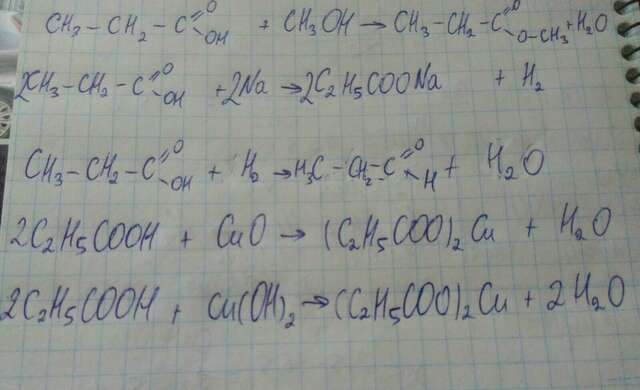 CH₃ – CH₂ – C(=O)OH + CH₃OH → CH₃ – CH₂ – C(=O)O – CH₃ + H₂O
2CH₃ – CH₂ – C(=O)OH + 2Na → 2C₂H₅COONa + H₂
CH₃ – CH₂ – C(=O)OH + H₂ → H₃C – CH₂ – C(=O)H + H₂O
2C₂H₅COOH + CuO → (C₂H₅COO)₂Cu + H₂O
2C₂H₅COOH + Cu(OH)₂ → (C₂H₅COO)₂Cu + 2H₂O